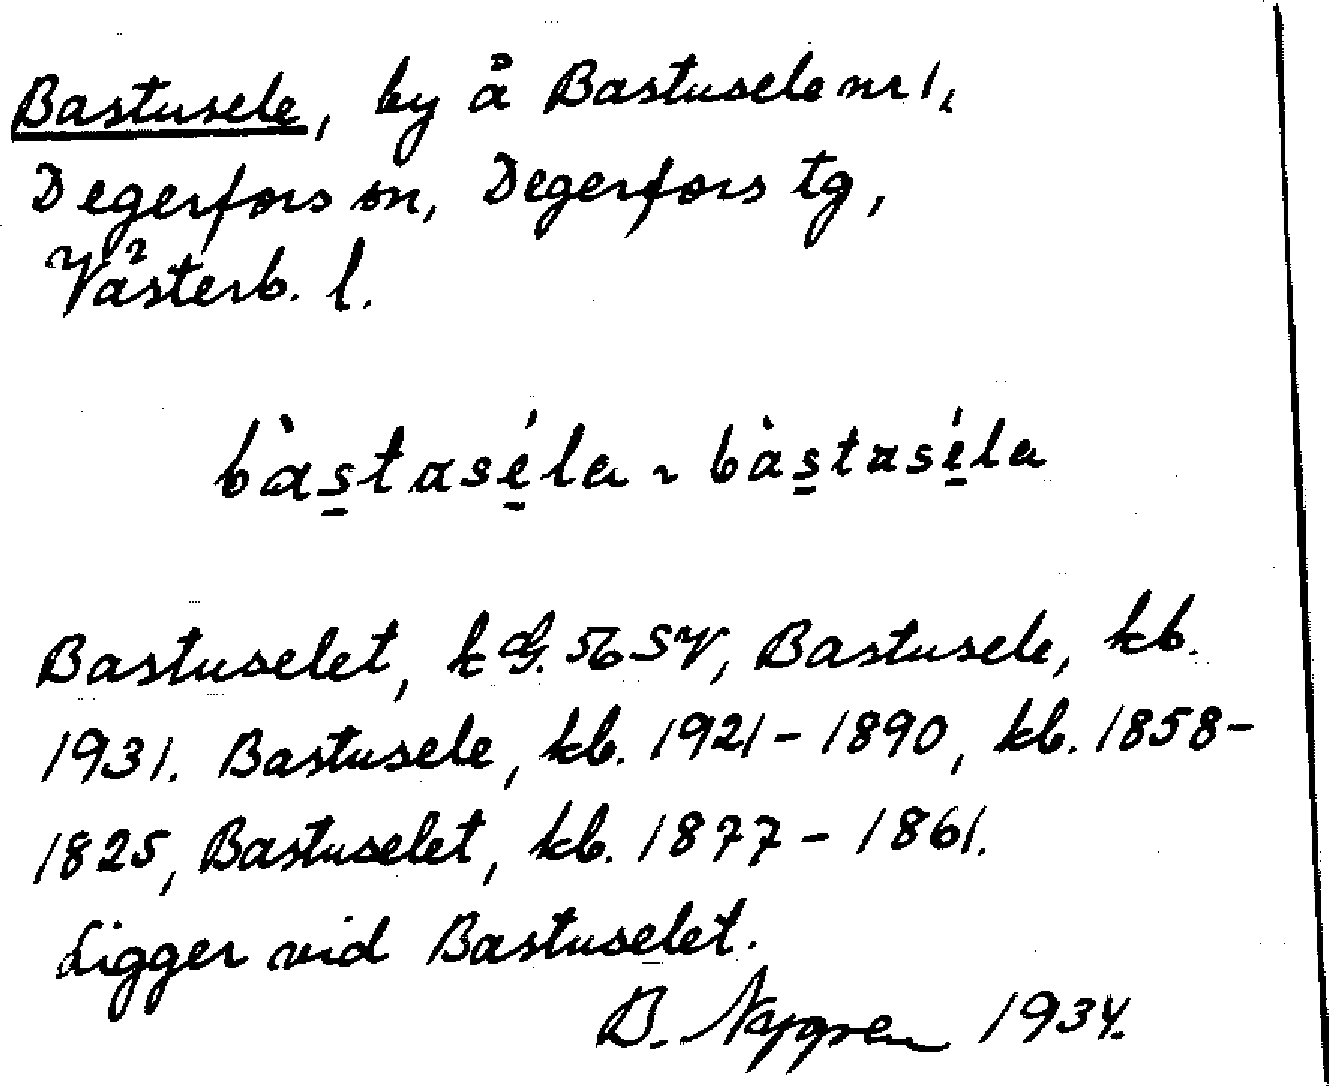 Bastusele, by å Bastusele nr 1,
Degerfors sn, Degerfors tg,
Västerb. l.
bàstaséla ~ bàstaséla
Bastuselet, k G. 56 SV, Bastusele, kb.
1931. Bastusele, kb. 1921-1890, kb. 1858-
1825, Bastuselet, kb. 1877-1861.
Ligger vid Bastuselet.
B. Nygren 1934.